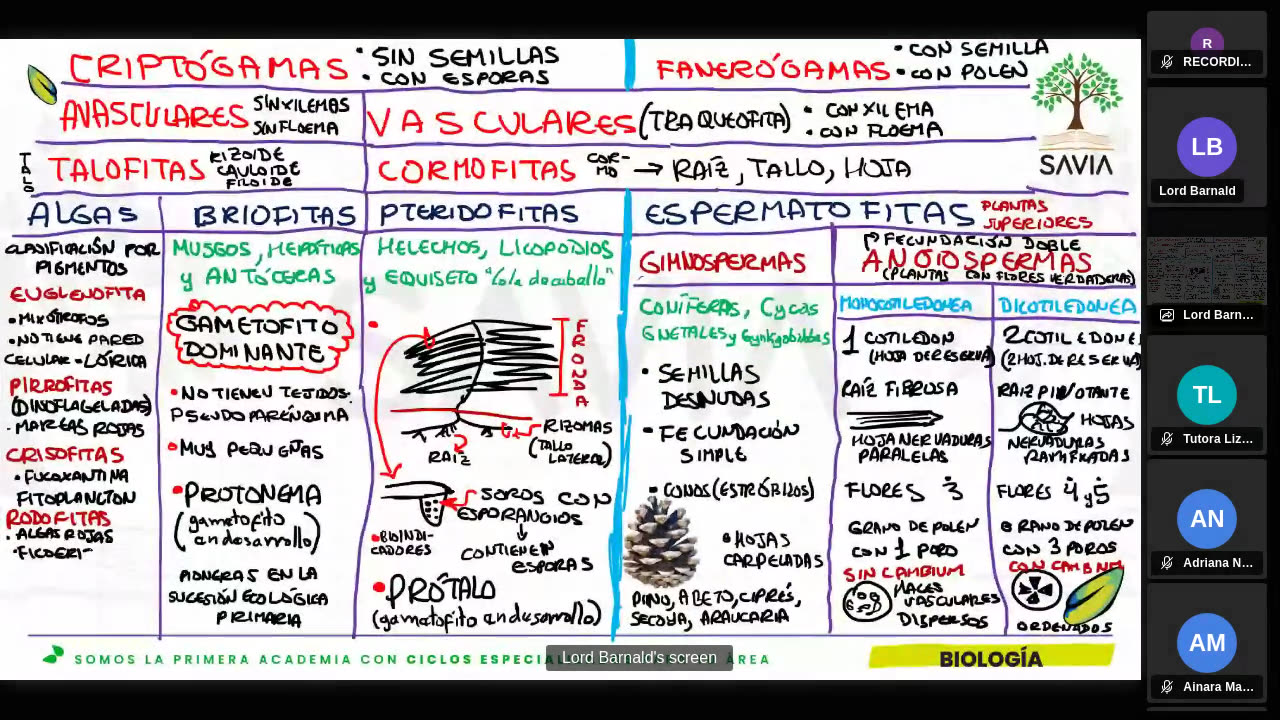 CRIPTÓGAMAS
• SIN SEMILLAS
• CON ESPORAS
FANERÓGAMAS
• CON SEMILLA
• CON POLEN
AVASCULARES
SIN XILEMAS
SIN FLOEMA
VASCULARES (TRAQUEOFITA)
• CON XILEMA
• CON FLOEMA
SAVIA
TALO
TALOFITAS
RIZOIDE
CAULOIDE
FILOIDE
CORMOFITAS
COR-
MO
→ RAÍZ, TALLO, HOJA
ALGAS
CLASIFICACIÓN POR
PIGMENTOS
EUGLENOFITA
• MIXÓTROFOS
• NO TIENE PARED
CELULAR - LÓRICA
PIRROFITAS
(DINOFLAGELADAS)
• MAREAS ROJAS
CRISOFITAS
• FUCOXANTINA
FITOPLANCTON
RODOFITAS
• ALGAS ROJAS
BRIOFITAS
MUSGOS, HEPÁTICAS
y ANTÓCERAS
GAMETOFITO
DOMINANTE
• NO TIENEN TEJIDOS.
PSEUDOPARÉNQUIMA
• MUY PEQUEÑAS
• PROTONEMA
(gametofito
en desarrollo)
PIONERAS EN LA
SUCESIÓN ECOLÓGICA
PRIMARIA
PTERIDOFITAS
HELECHOS, LICOPODIOS
y EQUISETO "Cola de caballo"
FRONDA
RIZOMAS
(TALLO
LATERAL)
RAÍZ
SOROS CON
ESPORANGIOS
CONTIENEN
ESPORAS
• BIOINDI-
CADORES
• PRÓTALO
(gametofito en desarrollo)
ESPERMATOFITAS
PLANTAS
SUPERIORES
GIMNOSPERMAS
CONÍFERAS, Cycas
GNETALES y Gynkgobilobas
• SEMILLAS
DESNUDAS
• FECUNDACIÓN
SIMPLE
• CONOS (ESTRÓBILOS)
• HOJAS
CARPELADAS
PINO, ABETO, CIPRÉS,
SECOYA, ARAUCARIA
FECUNDACIÓN DOBLE
ANGIOSPERMAS
(PLANTAS CON FLORES VERDADERAS)
MONOCOTILEDONEA
1 COTILEDON
(HOJA DE RESERVA)
RAÍZ FIBROSA
HOJA NERVADURAS
PARALELAS
FLORES 3
GRANO DE POLEN
CON 1 PORO
SIN CAMBIUM
HACES
VASCULARES
DISPERSOS
DICOTILEDONEA
2 COTILEDONES
(2 HOJ. DE RESERVA)
RAIZ PIVOTANTE
HOJAS
NERVADURAS
RAMIFICADAS
FLORES 4 y 5
GRANO DE POLEN
CON 3 POROS
CON CAMBIUM
ORDENADOS
SOMOS LA PRIMERA ACADEMIA CON CICLOS ESPECIAL
ÁREA
BIOLOGÍA
Lord Barnald's screen
R
RECORDI...
LB
Lord Barnald
Lord Barn...
TL
Tutora Liz...
AN
Adriana N...
AM
Ainara Ma...